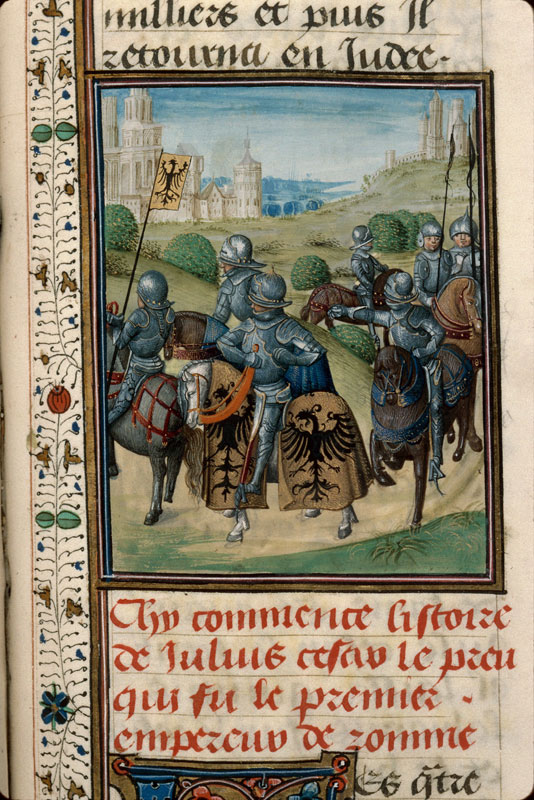 milliers et puis Il
retourna en Judee.
Chy commence listoire
de Julius cesar le preu
qui fu le premier .
empereur de romme
Es q̃tre